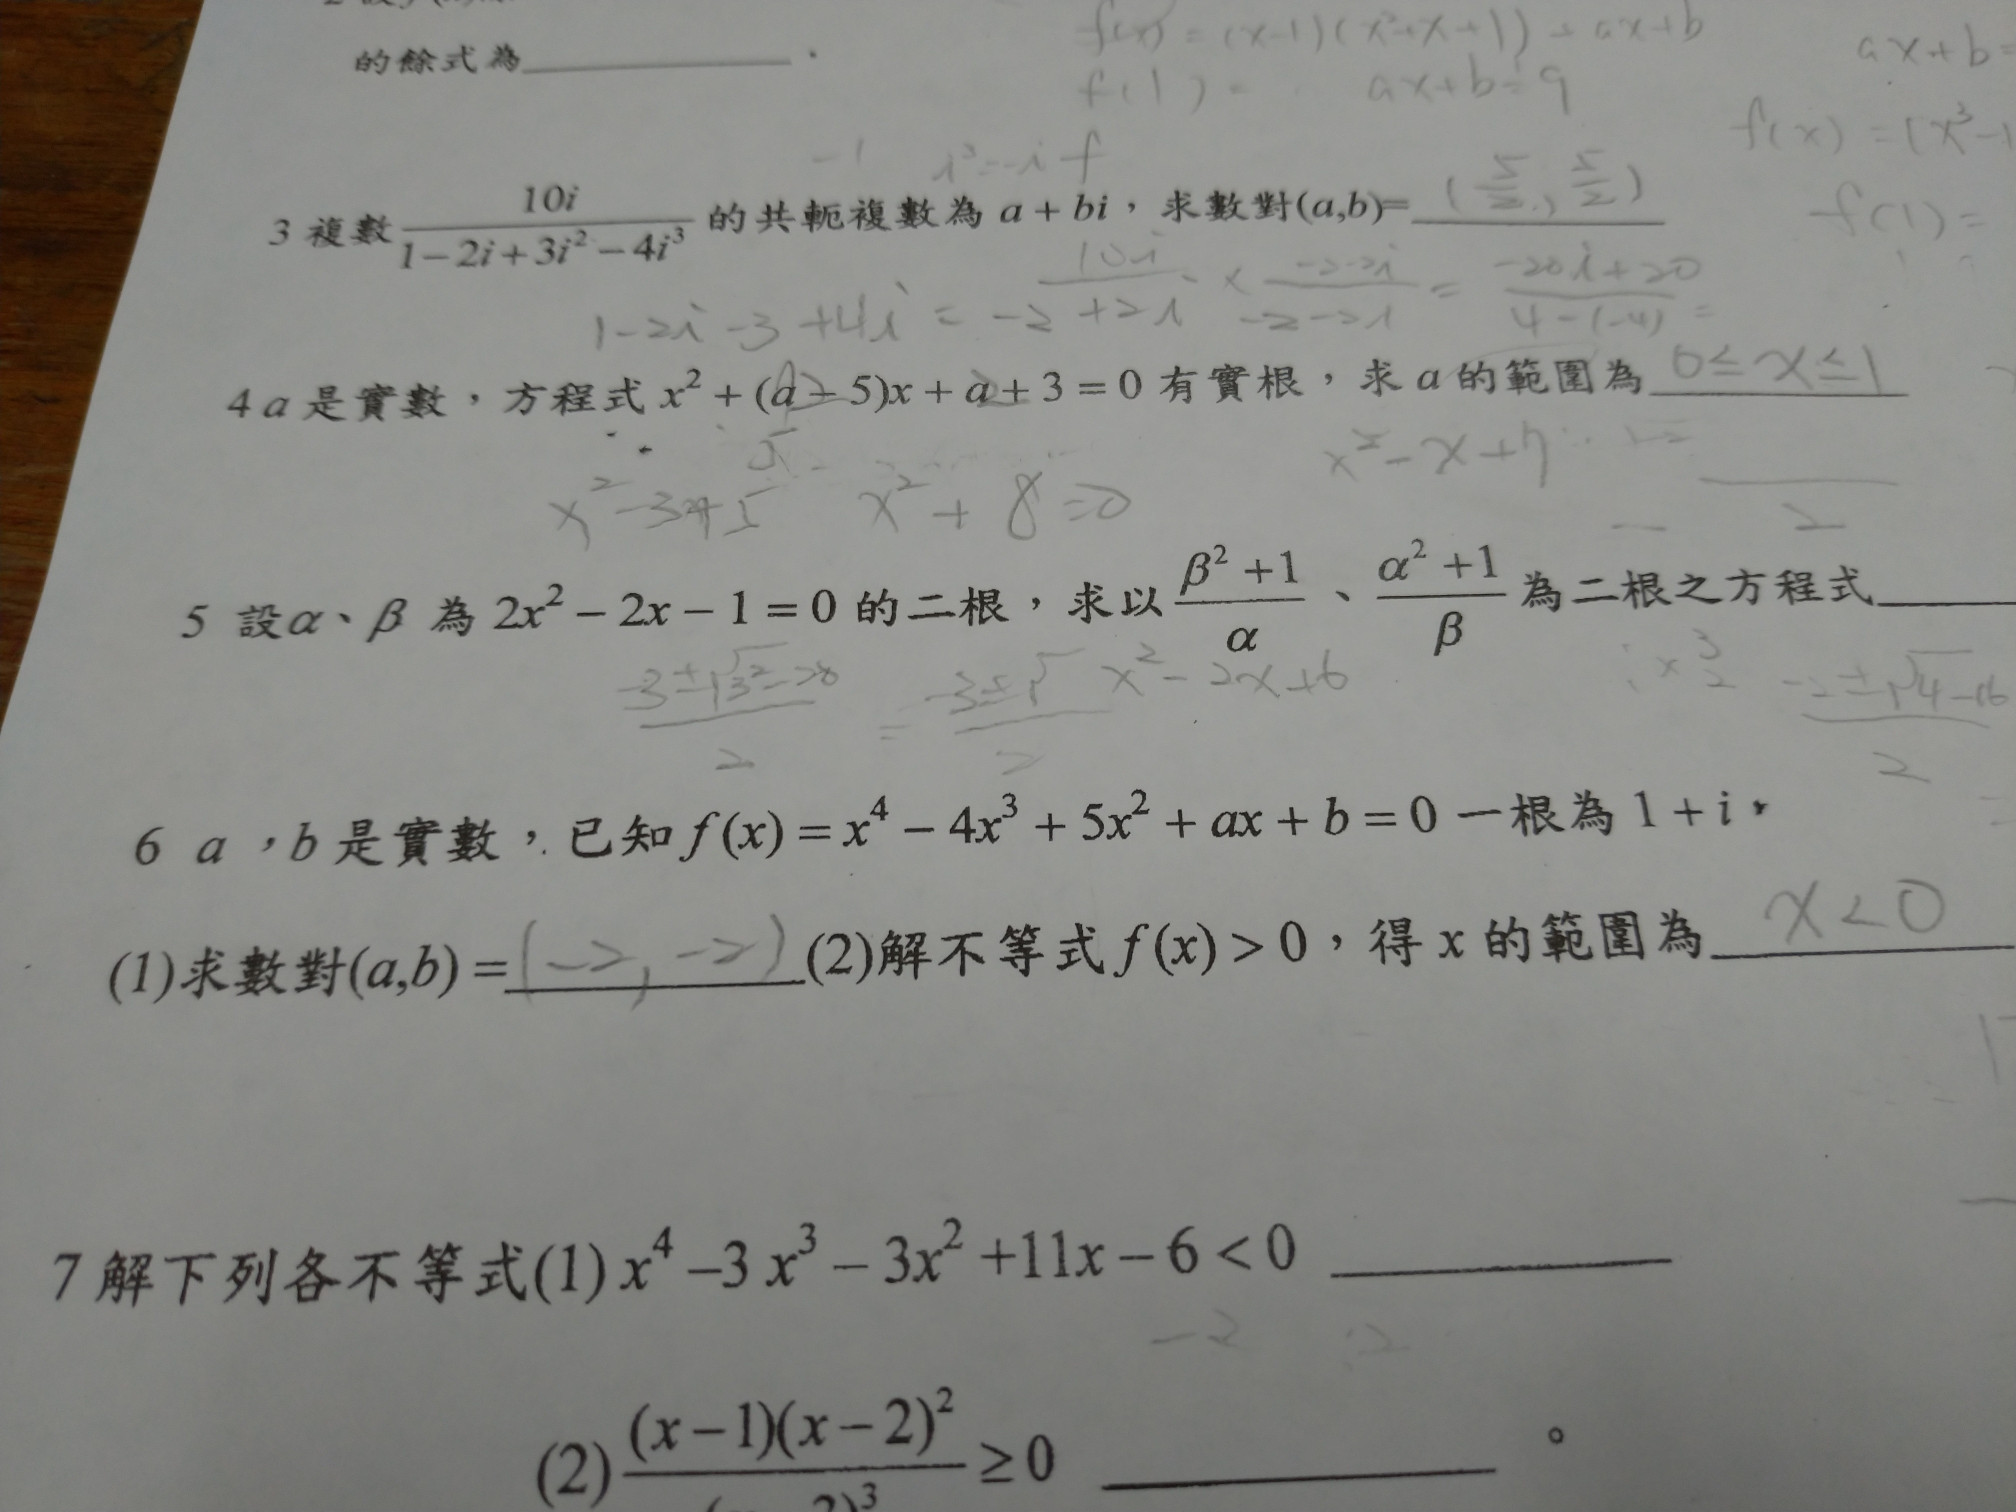 的餘式為________.
f(x) = (x-1)(x²+x+1) + ax+b
ax+b=
f(1) = ax+b=9
f(x) = (x³-1
-1 i³=-i f
3 複數 10i/(1-2i+3i²-4i³) 的共軛複數為 a+bi，求數對(a,b)= (5/2, 5/2)
f(1) =
1-2i-3+4i = 10i/(-2+2i) × (-2-2i)/(-2-2i) = (-20i+20)/(4-(-4)) =
4 a 是實數，方程式 x²+(a-5)x+a+3=0 有實根，求 a 的範圍為 0≤x≤1
x²-x+4
x²-3x+5 x²+8=0
2
5 設α、β 為 2x²-2x-1=0 的二根，求以 (β²+1)/α 、 (α²+1)/β 為二根之方程式____
x²-2x+6
6 a，b 是實數，已知 f(x)=x⁴-4x³+5x²+ax+b=0 一根為 1+i，
(1)求數對(a,b)= (-2, -2) (2)解不等式 f(x)>0，得 x 的範圍為 x<0
7 解下列各不等式(1) x⁴-3x³-3x²+11x-6<0 ________
-2
(2) (x-1)(x-2)² ≥0 ________。